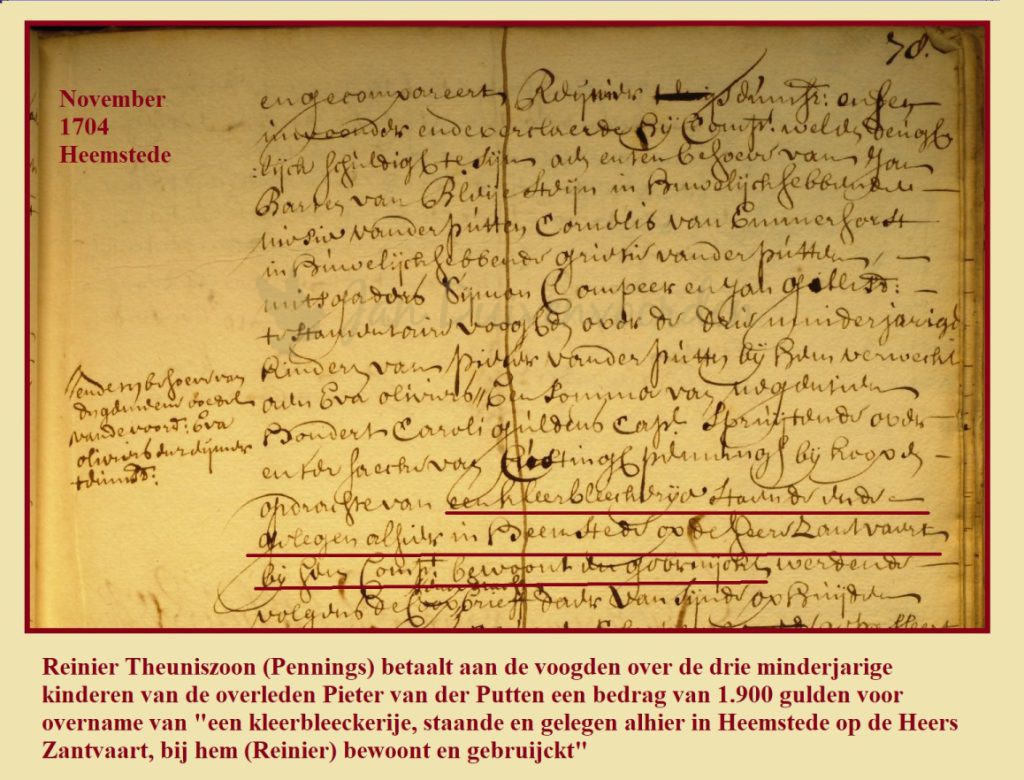 78.
November
1704
Heemstede
en gecompareert Reijnier teunisz: en heeft
ende verclaerde hij Comp:t wel en deughe
lijck schuldigh te sijn aen en ten behoeve van Jan
Barten van Bleijesteijn in huwelijck hebbende
vander putten Cornelis van Emmerhorst
in huwelijck hebbende grietie vander putten
mitsgaders Sijmon Compeer en Jan
testamentaire vooghden over de drie minderjarige
kinderen van pieter vander putten bij hem verweckt
aen Eva oliviers Een somma van negentien
hondert Caroli guldens Cap: spruijtende over
en ter saecke van penningh bij koop en
opdrachte van een kleerbleeckerije staende ende
gelegen alhier in Heemstede op de heers Zantvaert
bij hem Comp:t bewoont en gebruijckt werdende
volgens de daer van sijnde op huijden
ende ten behoeve van
boedel
vande voorn: Eva
oliviers en reijnier
teunisz:
Reinier Theuniszoon (Pennings) betaalt aan de voogden over de drie minderjarige
kinderen van de overleden Pieter van der Putten een bedrag van 1.900 gulden voor
overname van "een kleerbleeckerije, staande en gelegen alhier in Heemstede op de Heers
Zantvaart, bij hem (Reinier) bewoont en gebruijckt"